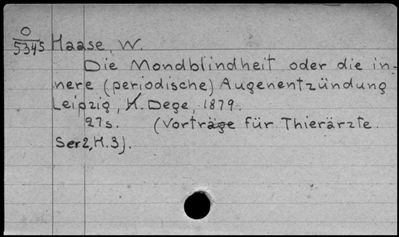 O
5345 Haase, W.
Die Mondblindheit oder die in-
nere (periodische) Augenentzündung
Leipzig, H. Dege, 1879.
27s. (Vorträge für Thierärzte
Ser2, H.3).